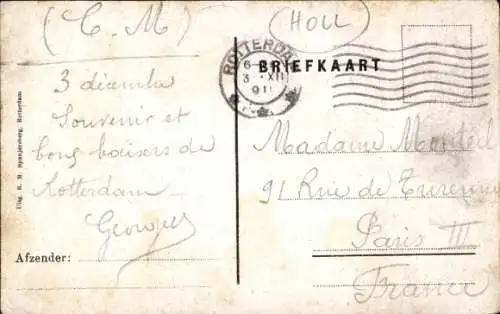 (C. M)
(HOLL)
ROTTERDAM
6-
3 XII
91
BRIEFKAART
3 décembre
Souvenir et
bons baisers de
Rotterdam
Georges
Afzender:
Uitg. R. M. Spanjersberg, Rotterdam
Madame Monteil
91 Rue de Turenne
Paris III
France